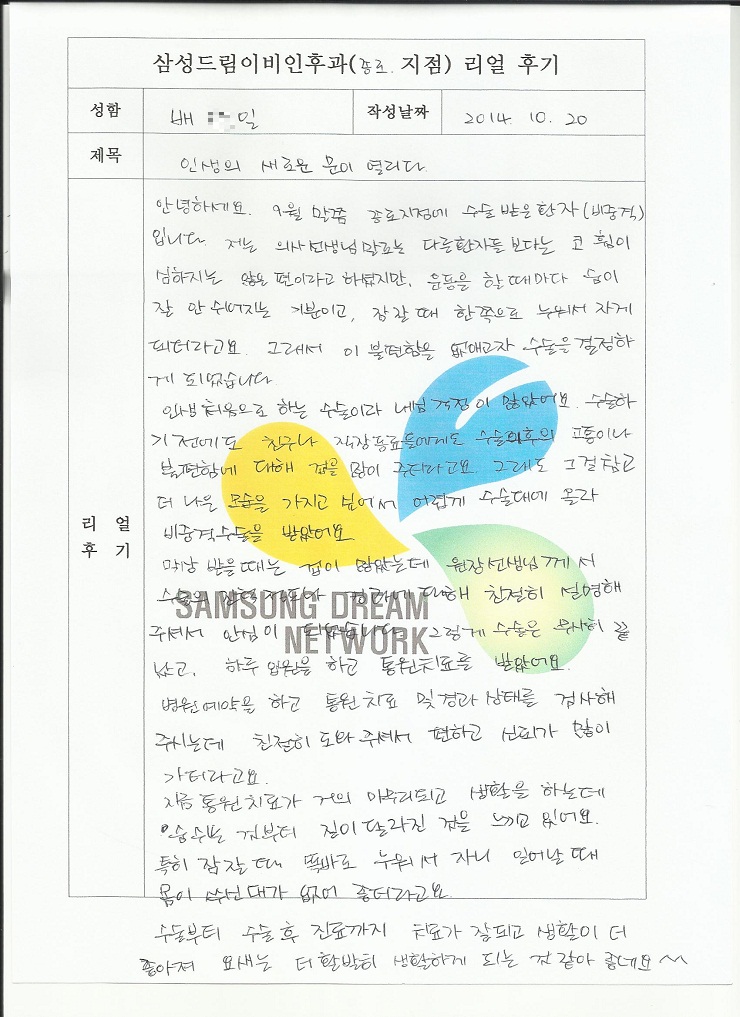 삼성드림이비인후과(종로 지점) 리얼 후기
성함 배 일 작성날짜 2014. 10. 20
제목 인생의 새로운 문이 열리다
리 얼
후 기
안녕하세요. 9월 말쯤 종로지점에 수술 받은 환자 (비중격)
입니다. 저는 의사선생님 말로는 다른환자들 보다는 코 휨이
심하지는 않은 편이라고 하셨지만, 운동을 할 때마다 숨이
잘 안 쉬어지는 기분이고, 잠잘 때 한쪽으로 누워서 자게
되더라고요. 그래서 이 불편함을 없애고자 수술을 결정하
게 되었습니다
인생 처음으로 하는 수술이라 내심 걱정이 많았어요. 수술하
기 전에도 친구나 직장동료들에게도 수술이후의 고통이나
불편함에 대해 겁을 많이 주더라고요. 그래도 그걸 참고
더 나은 모습을 가지고 싶어서 어렵게 수술대에 올라
비중격수술을 받았어요
막상 받을때는 겁이 많았는데 원장선생님께서
수술의 경과에 대해 친절히 설명해
주셔서 안심이 되었습니다. 그렇게 수술은 무사히 끝
났고, 하루 입원을 하고 통원치료를 받았어요.
병원예약을 하고 통원치료 및 경과 상태를 검사해
주시는데 친절히 도와 주셔서 편하고 신뢰가 많이
가더라고요.
지금 통원치료가 거의 마무리되고 생활을 하는데
숨쉬는 것부터 질이 달라진 것을 느끼고 있어요.
특히 잠잘 때 똑바로 누워서 자니 일어날 때
몸이 쑤신데가 없어 좋더라고요
수술부터 수술 후 진료까지 치료가 잘되고 생활이 더
좋아져 요새는 더 활발히 생활하게 되는 것 같아 좋네요 ^^
SAMSONG DREAM
NETWORK